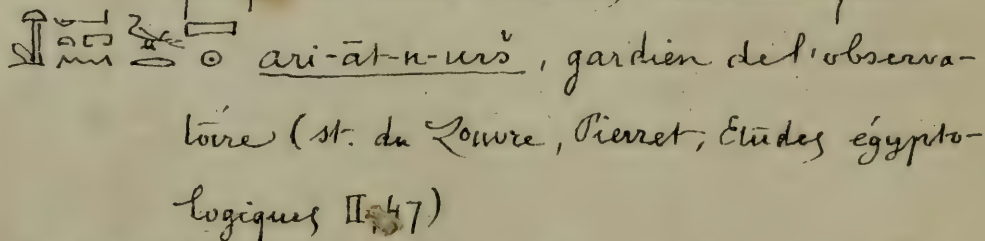 ari-āt-n-urš, gardien de l'observa-
toire (st. du Louvre, Pierret, Études égypto-
logiques II, 47)